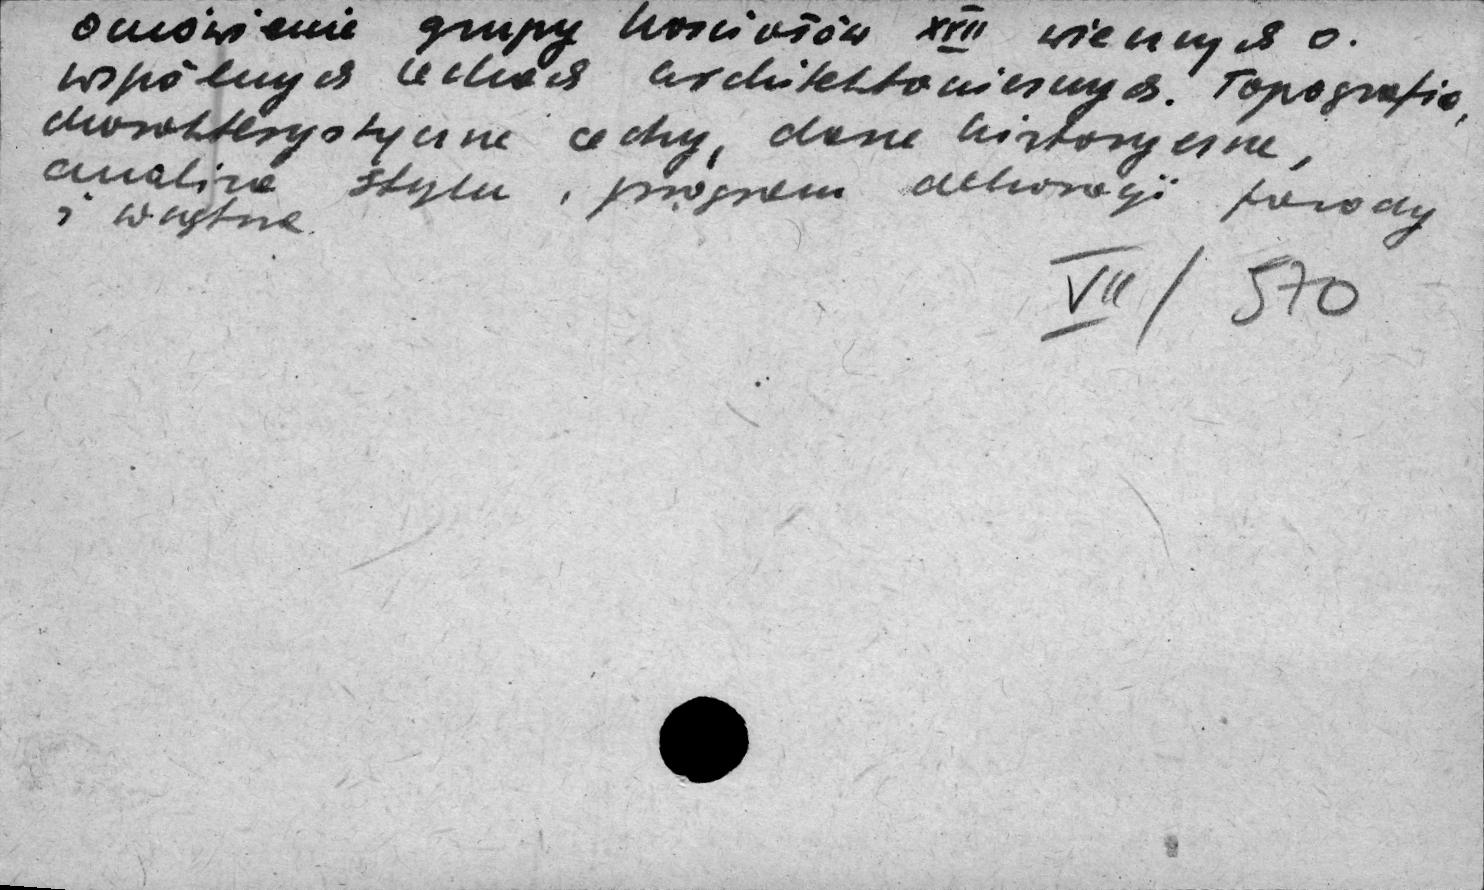 omówienie grupy kościołów XVII wiecznych o.
wspólnych cechach architektonicznych. Topografia,
charakterystyczne cechy, dane historyczne,
analiza stylu, program dekoracji fasady
i wnętrza.
VII / 570